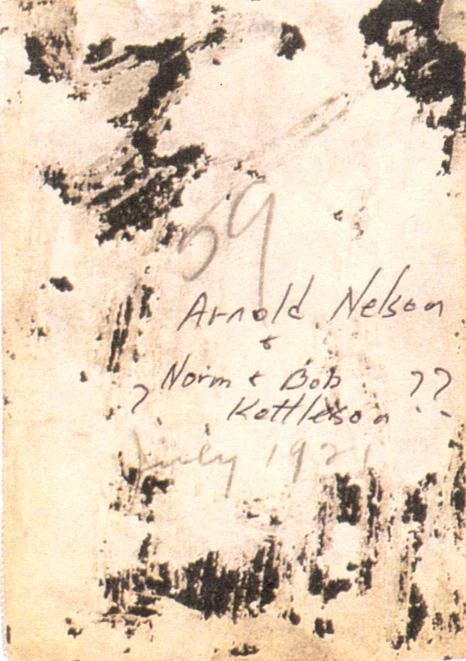 59
Arnold Nelson
+
? Norm + Bob ??
Kottleson
July 1921